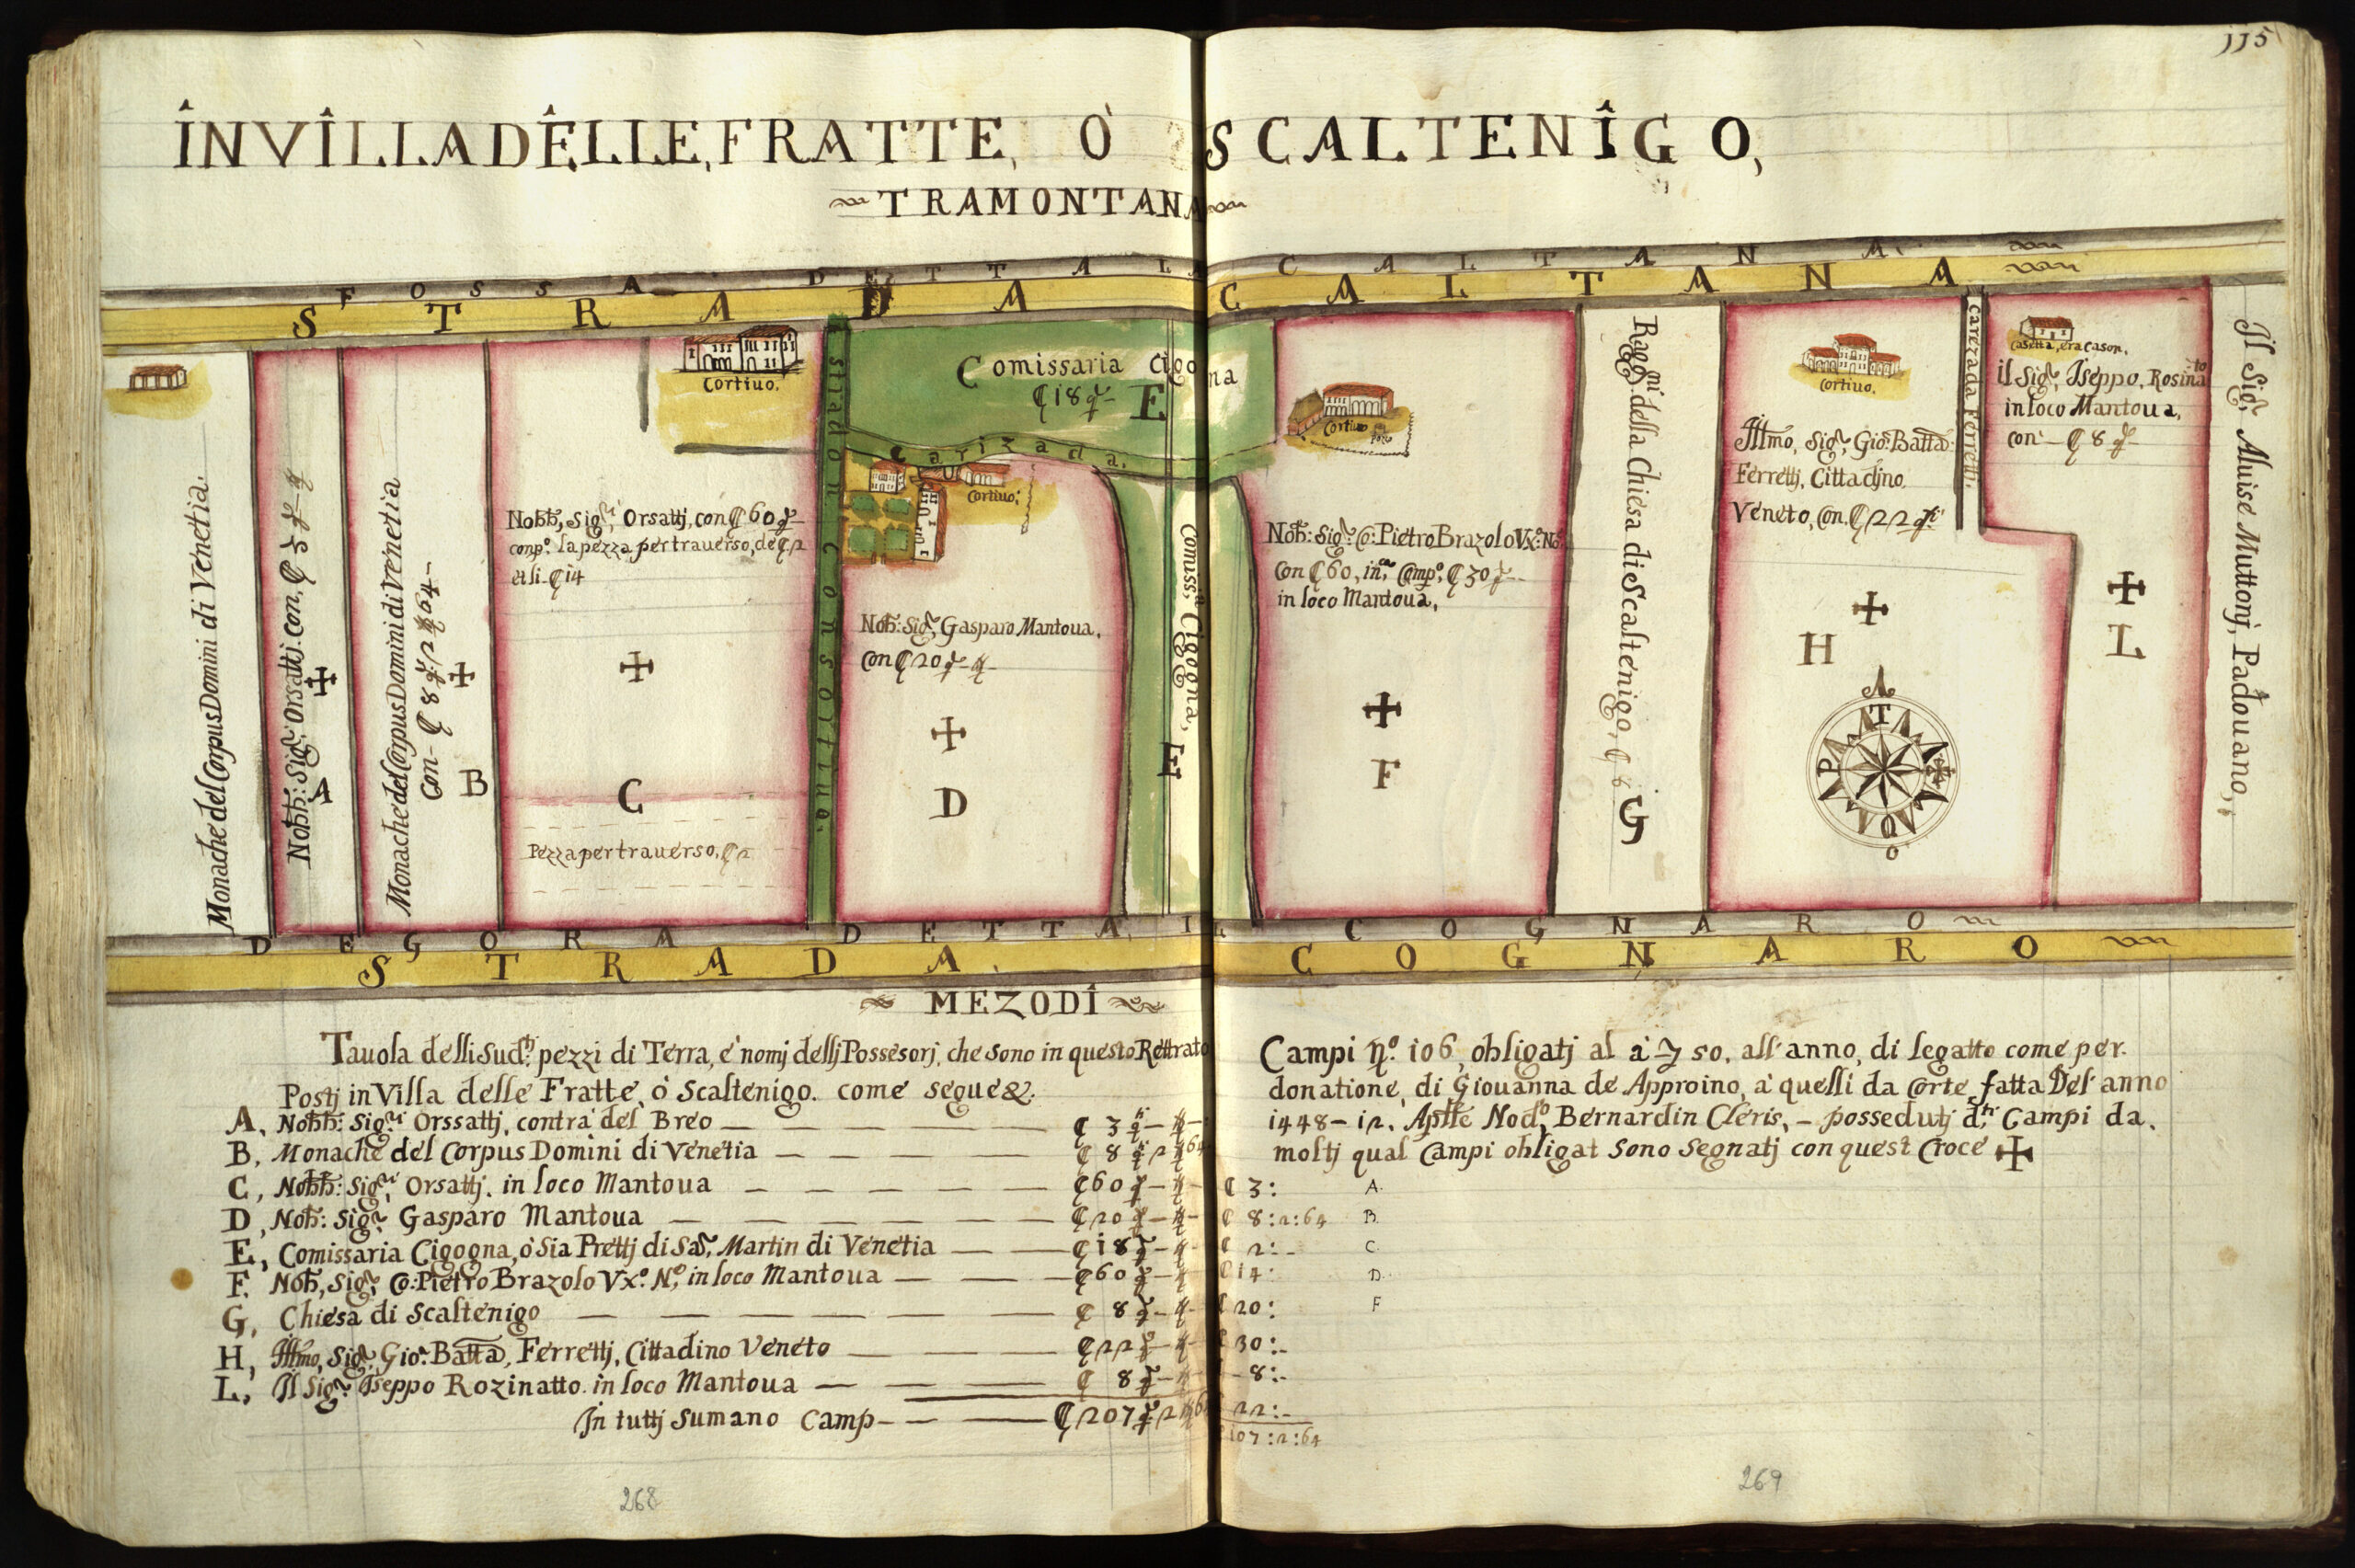 115
ÎN VÎLLA DÊLLE, FRATTE, O' SCALTENÎGO,
TRAMONTANA
FOSSA DETTA LA CALTANA.
STRADA CALTANA
Monache del Corpus Domini di Venetia.
Nobb: Sigri Orsattj. con. ₵ 3
A
Monache del Corpus Domini di Venetia
Con- ₵ 8 2 64-
B
Cortiuo.
Nobb, Sigri Orsattj, con ₵ 60
conpo. la pezza per trauerso, de ₵ 2
et li- ₵ 14
C
Pezza per trauerso, ₵ 2
stradon Consortiuo.
Comissaria Cigogna
₵ 18
E
Carizada.
Cortiuo:
Nob: Sigr. Gasparo Mantoua,
Con ₵ 20
D
Comissa Cigogna,
E
Cortiuo
Nob: Sigr. Co: Pietro Brazolo Vxo: No:
Con ₵ 60, in Compo, ₵ 30
in loco Mantoua,
F
Raggni. della Chiesa di Scaltenigo, ₵ 8
G
Cortiuo.
Illmo, Sigr, Gio: Batta:
Ferrettj, Cittadjno,
Veneto, Con. ₵ 22
H
T
P
O
Carezada Ferrettj.
Casetta, era Cason.
il Sigr, Iseppo, Rosinato
in loco Mantoua,
con- ₵ 8
L
Il Sigr, Aluise Muttonj, Padouano,
DEGORA DETTA, IL COGNARO
STRADA, COGNARO
MEZODÎ
Tauola delli Sudti pezzi di Terra, e' nomj dellj Possesorj, che sono in questo Rettrato
Postj in Villa delle Fratte, ò Scaltenigo. come segue &.
A, Nobb: Sigri Orssattj, contra' del Breo ₵ 3
B, Monache del Corpus Domini di Venetia ₵ 8 2 64
C, Nobb: Sigri Orsattj. in loco Mantoua ₵ 60
D, Nob: Sigr. Gasparo Mantoua ₵ 20
E, Comissaria Cigogna, ò sia Prettj di San, Martin di Venetia ₵ 18
F. Nob, Sigr, Co: Pietro Brazolo Vxo. No, in loco Mantoua ₵ 60
G, Chiesa di Scaltenigo ₵ 8
H, Illmo, Sigr, Gio: Batta, Ferrettj, Cittadino Veneto ₵ 22
L, Il Sigr. Iseppo Rozinatto. in loco Mantoua ₵ 8
In tuttj Sumano Camp- ₵ 207 2 64
Campi No. 106, obligatj al a' 50, all' anno, di legatto come per
donatione, di Giouanna de Approino, a' quelli da Corte, fatta Del' anno
1448 - 12. Aplle Nodo, Bernardin Cleris, - possedutj dti Campi da,
moltj qual Campi obligat sono segnatj con quest Croce
₵ 3: A.
₵ 8:2:64 B.
₵ 2:- C.
₵ 14: D.
20: F
30:-
8:-
22:-
107:2:64
268
269